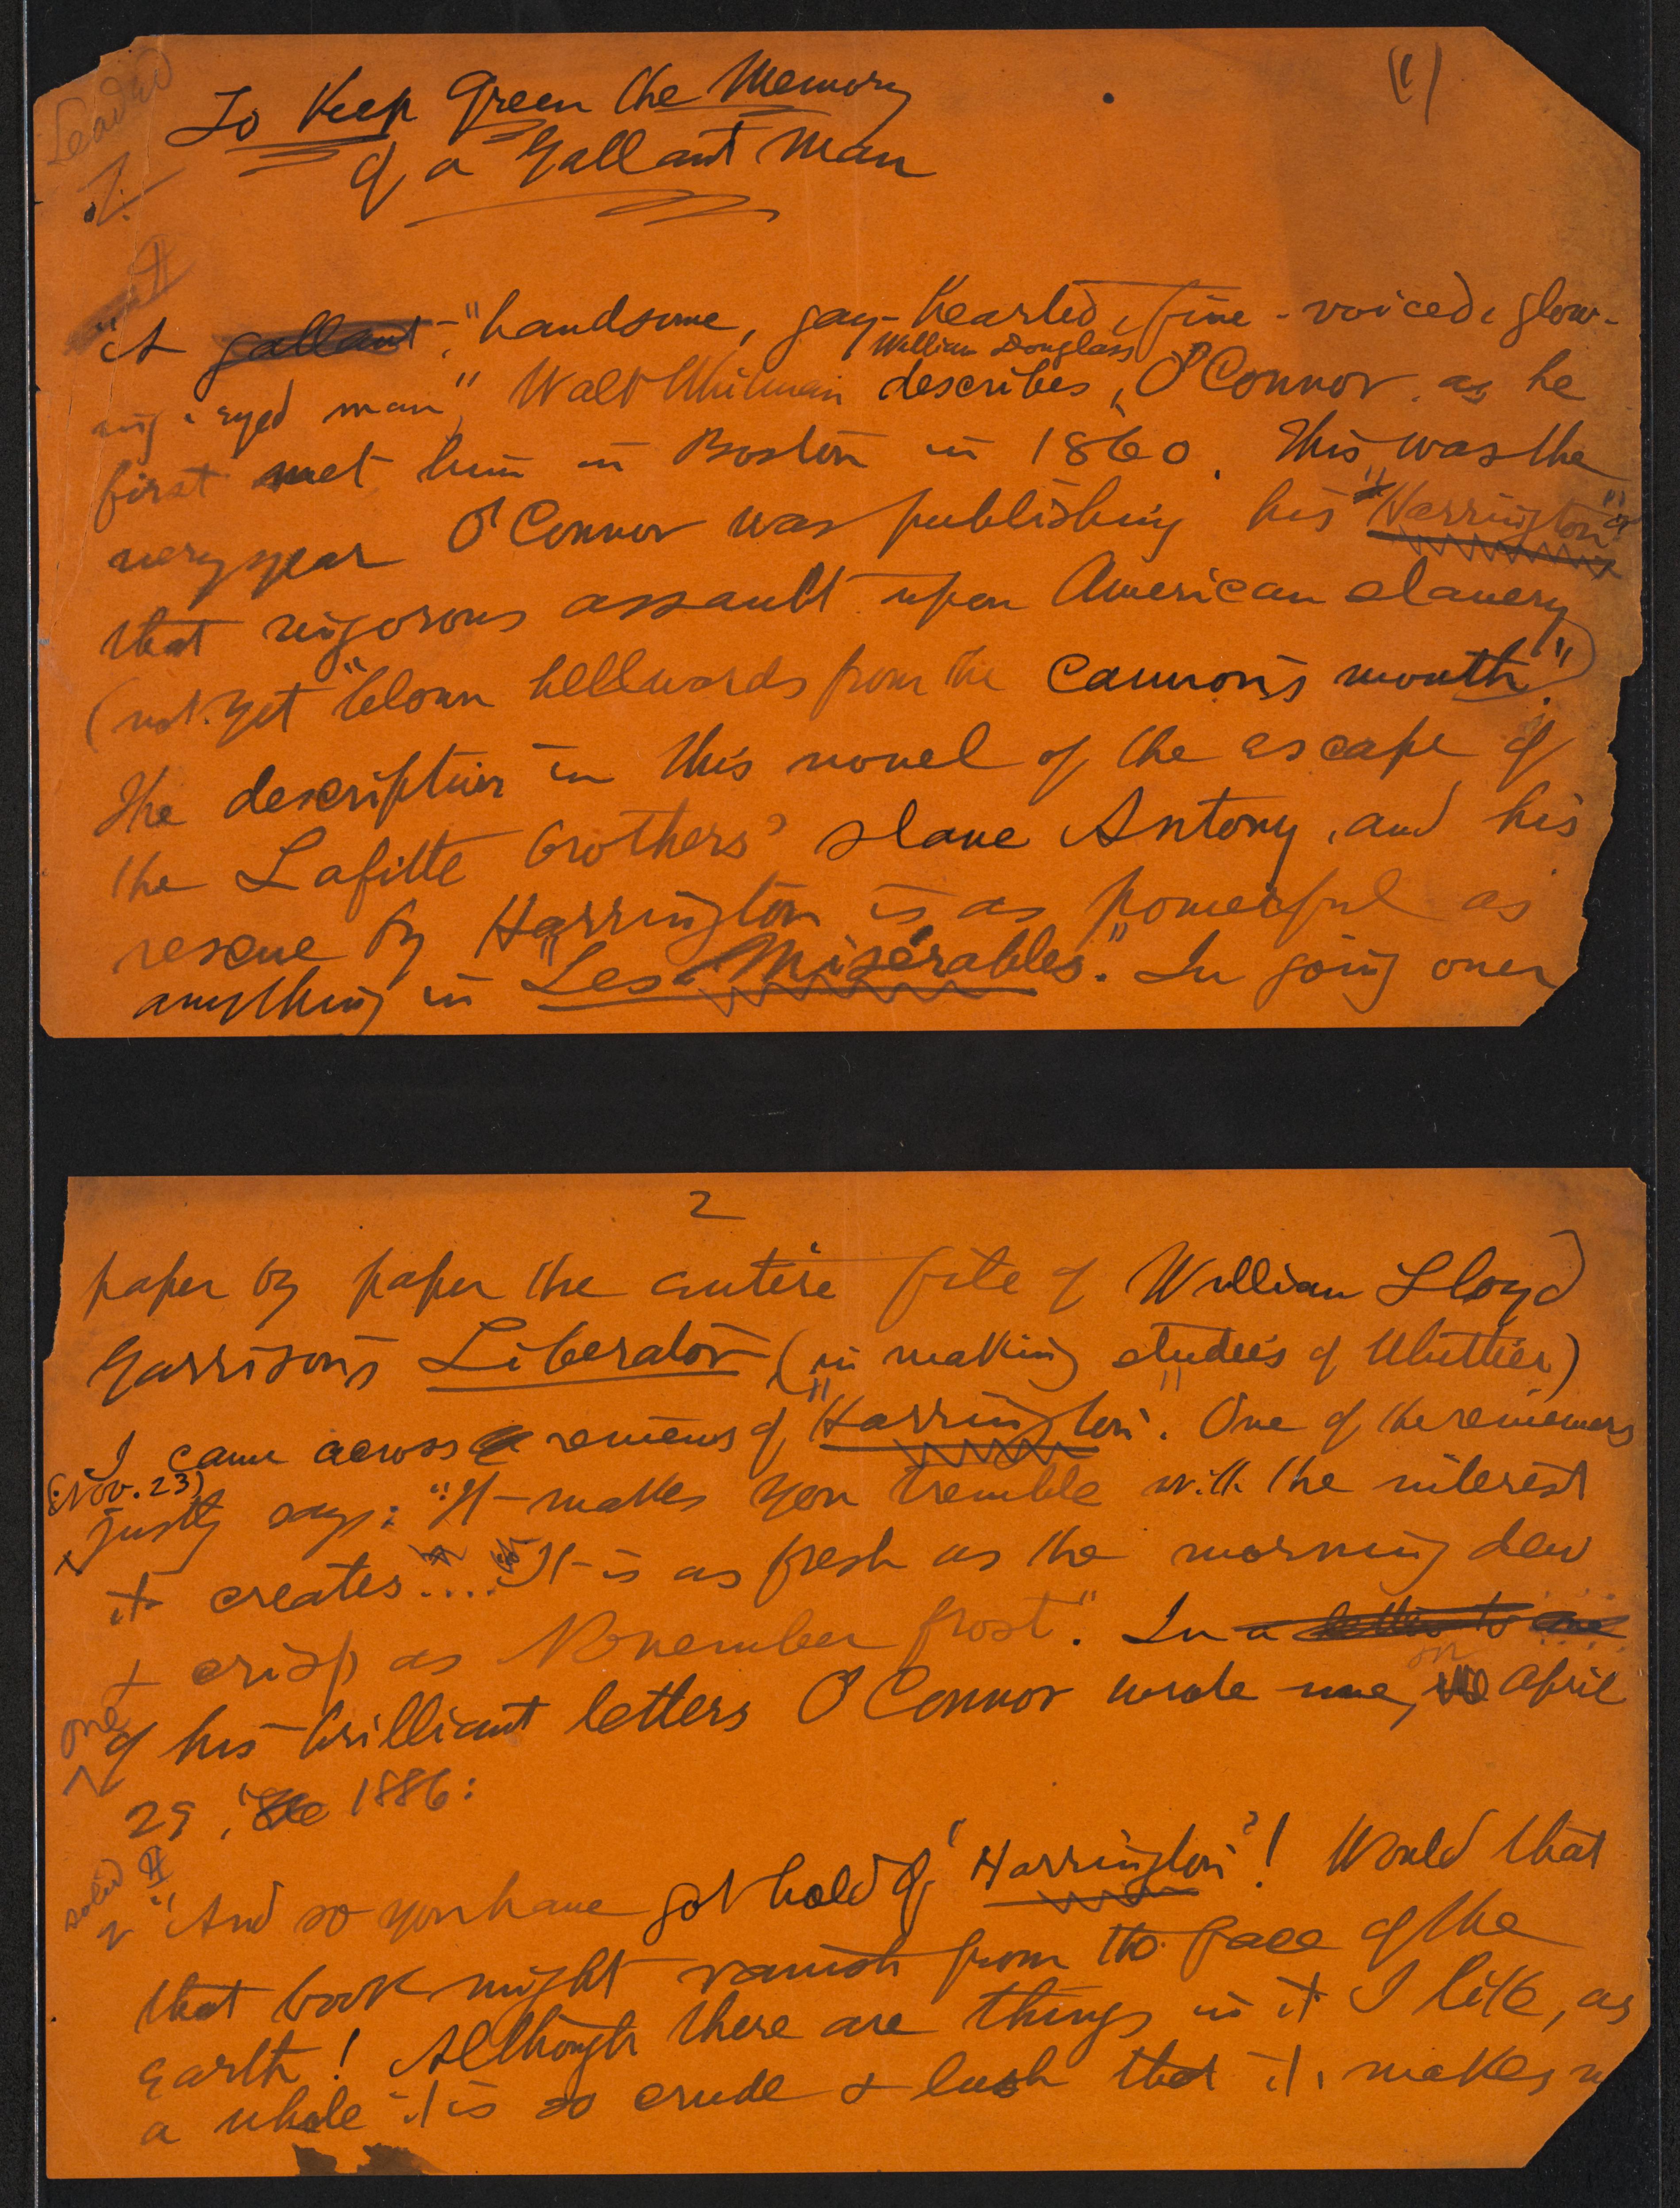 (1)
Leaded
To Keep Green the Memory
of a Gallant Man
"A gallant, "handsome, gay-hearted, fine-voiced, glow-
ing-eyed man," Walt Whitman describes William Douglass O'Connor as he
first met him in Boston in 1860. This was the
very year O'Connor was publishing his "Harrington"
that vigorous assault upon American slavery
(not yet "blown hellwards from the cannon's mouth").
The description in this novel of the escape of
the Lafitte brothers' slave Antony, and his
rescue by Harrington is as powerful as
anything in "Les Misérables." In going over
2
paper by paper the entire file of William Lloyd
Garrison's Liberator (in making studies of Whittier)
I came across reviews of "Harrington". One of the reviewers
(Nov. 23)
justly says: "It makes you tremble with the interest
it creates.... It is as fresh as the morning dew
+ crisp as November frost". In a letter to one
one of his brilliant letters O'Connor wrote me, on April
29, 1886:
solid
"And so you have got hold of 'Harrington'! Would that
that book might vanish from the face of the
earth! Although there are things in it I like, as
a whole it is so crude & lush that it makes